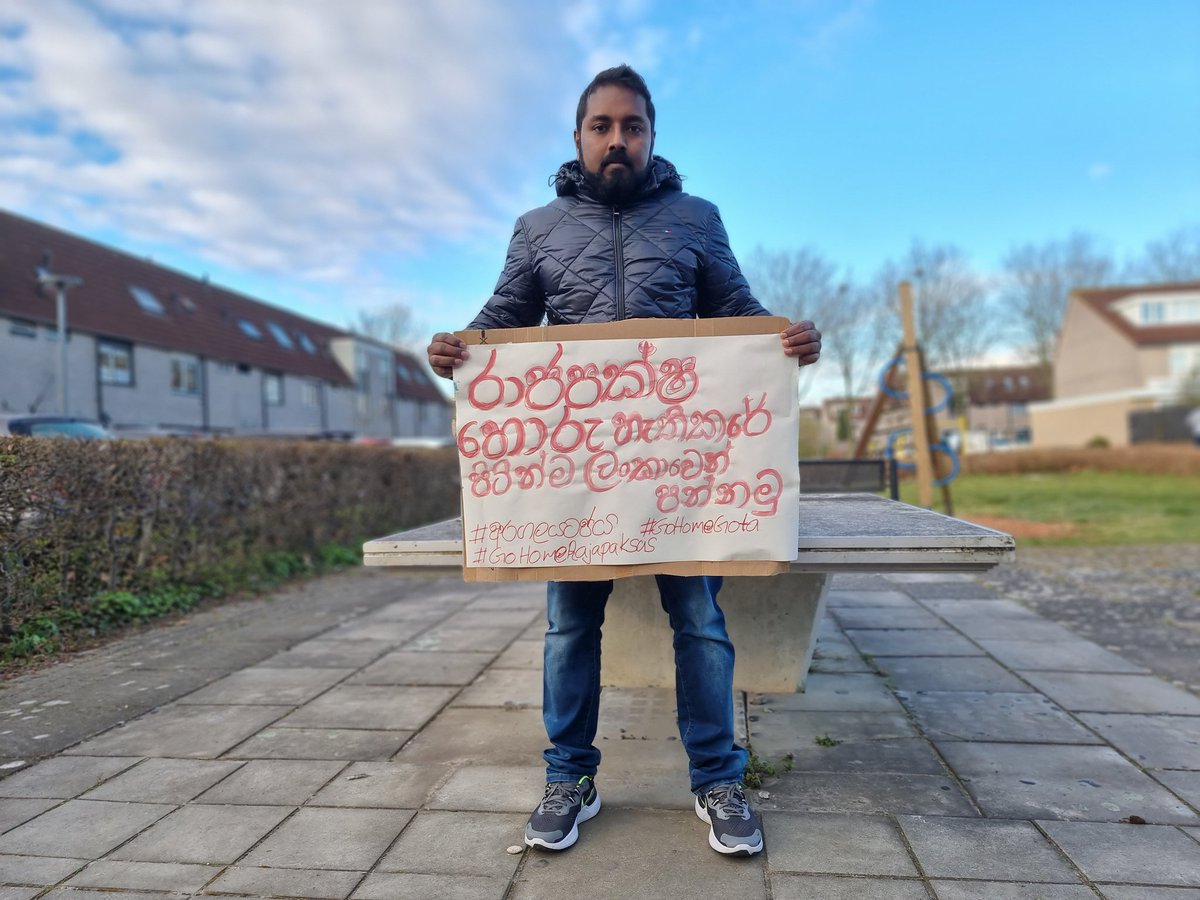 රාජපක්ෂ
හොරු හැතිකරේ
පිටින්ම ලංකාවෙන්
පන්නමු
#අරගලයටජය #GoHomeGota
#GoHomeRajapaksas